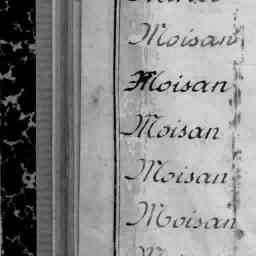 Moisan
Moisan
Moisan
Moisan
Moisan